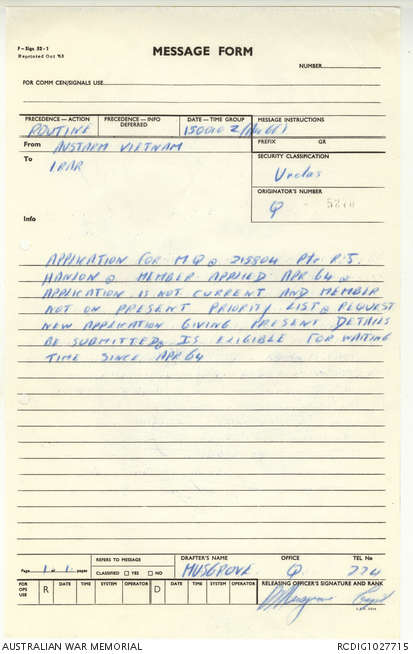 F—Sigs. 52-1
Reprinted Oct '63
MESSAGE FORM
NUMBER
FOR COMM CEN/SIGNALS USE
PRECEDENCE—ACTION
ROUTINE
PRECEDENCE—INFO
DEFERRED
DATE—TIME GROUP
150010 Z
MESSAGE INSTRUCTIONS
PREFIX GR
From AUSTARM VIETNAM
To 1RAR
SECURITY CLASSIFICATION
Unclas
ORIGINATOR'S NUMBER
Q
Info
APPLICATION FOR MQ 215804 Pte R.J.
HANLON MEMBER APPLIED APR 64
APPLICATION IS NOT CURRENT AND MEMBER
NOT ON PRESENT PRIORITY LIST REQUEST
NEW APPLICATION GIVING PRESENT DETAILS
BE SUBMITTED IS ELIGIBLE FOR WAITING
TIME SINCE APR 64
Page 1 of 1 pages
REFERS TO MESSAGE
CLASSIFIED YES NO
DRAFTER'S NAME
MUSGROVE
OFFICE
Q
TEL No
224
FOR OPS USE
R DATE TIME SYSTEM OPERATOR D DATE TIME SYSTEM OPERATOR
RELEASING OFFICER'S SIGNATURE AND RANK
AUSTRALIAN WAR MEMORIAL
RCDIG1027715